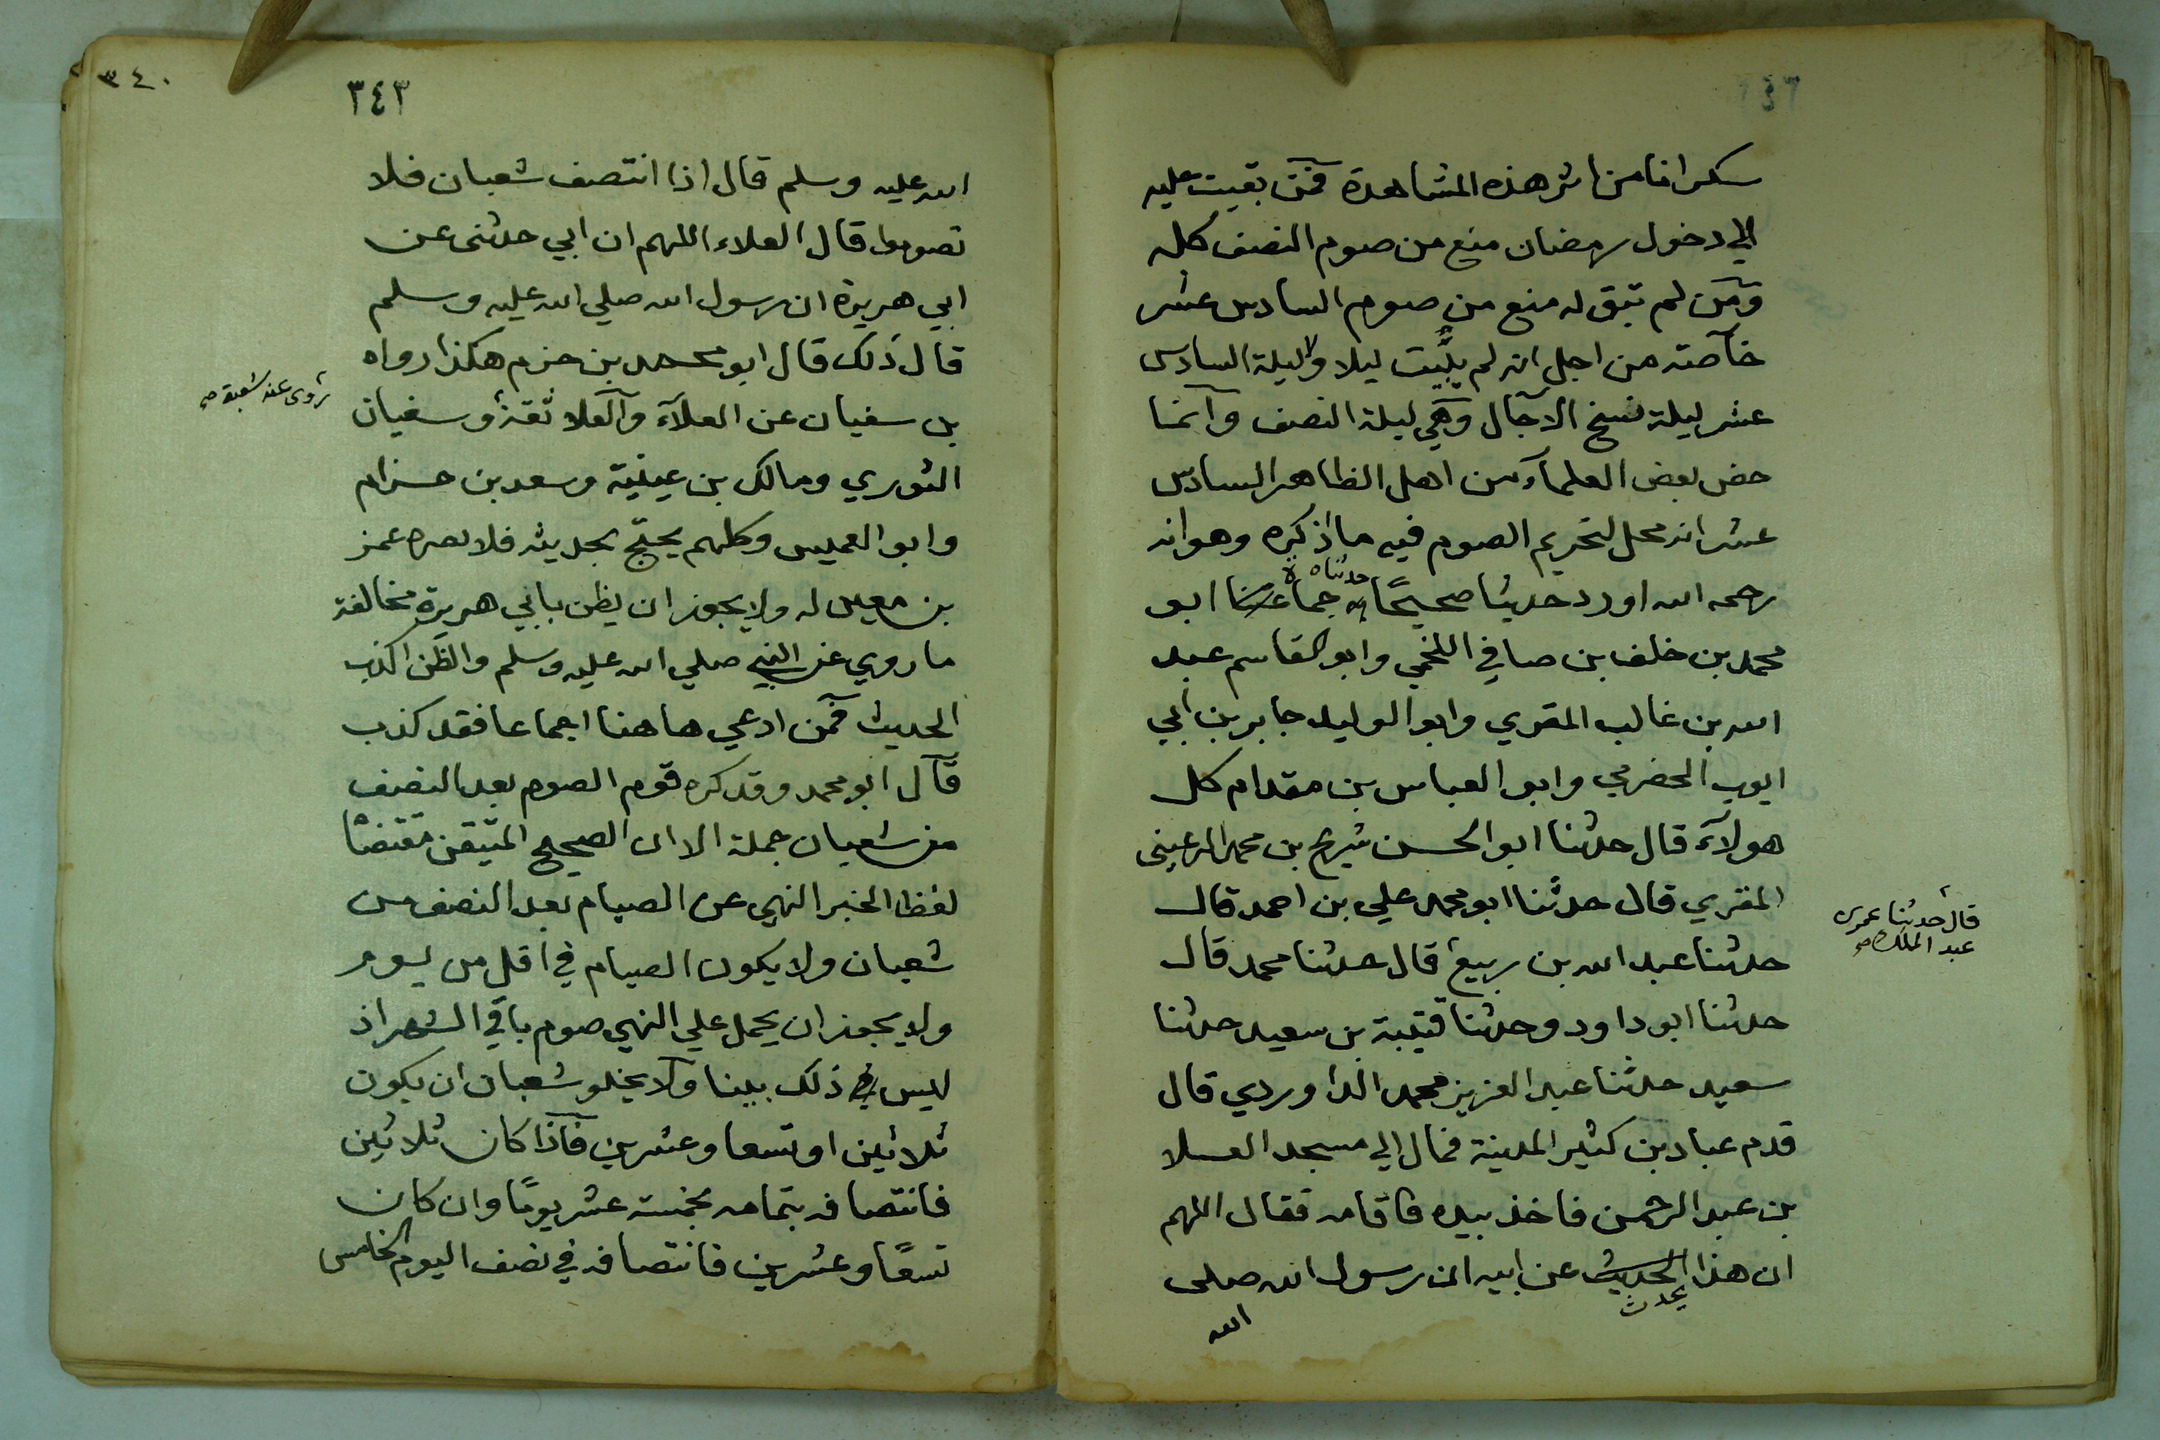 سكرانا من اثر هذه المشاهدة فمن بقيت عليه
الي دخول رمضان منع من صوم النصف كله
ومن لم تبق له منع من صوم السادس عشر
خاصته من اجل انه لم يبيت ليلا ولا ليلة السادس
عشر ليلة نسخ الاجال وهي ليلة النصف وانما
خص بعض العلماء من اهل الظاهر السادس
عشر انه محل لتحريم الصوم فيه ما اذكره وهو انه
رحمه الله اورد حديثا صحيحًا حدثناه به جماعة ابو
محمد بن خلف بن صافي اللخمي وابو القاسم عبد
الله بن غالب المقري وابو الوليد جابر بن ابي
ايوب الحضرمي وابو العباس بن مقدام كل
هولآء قال حدثنا ابو الحسن شريح بن محمد الرعيني
المقري قال حدثنا ابو محمد علي بن احمد قال
حدثنا عبد الله بن ربيع قال حدثنا محمد قال
قال حدثنا عمر بن
عبد الملك صح
حدثنا ابو داود وحدثنا قتيبة بن سعيد حدثنا
سعيد حدثنا عبد العزيز محمد الدراوردي قال
قدم عباد بن كثير المدينة فمال الي مسجد العلا
بن عبد الرحمن فاخذ بيده فاقامه فقال اللهم
ان هذا الحديث عن ابيه ان رسول الله صلى
يحدث
الله
٣٤٠
٣٤٣
الله عليه وسلم قال اذا انتصف شعبان فلا
تصوموا قال العلاء اللهم ان ابي حدثنى عن
ابي هريرة ان رسول الله صلي الله عليه وسلم
قال ذلك قال ابو محمد بن حزم هكذا رواه
بن سفيان عن العلآء والعلا ثقة وسفيان
روى عنه شعبة صح
الثوري ومالك بن عيينة وسعد بن حزام
وابو العميس وكلهم يحتج بحديثه فلا يضره غمز
بن معين له ولا يجوز ان يظن بابي هريرة مخالفة
ما روي عن النبي صلي الله عليه وسلم والظن اكذب
الحديث فمن ادعي هاهنا اجماعا فقد كذب
قال ابو محمد وقد كره قوم الصوم بعد النصف
من شعبان جملة الا ان الصحيح المتيقن مقتضا
لفظ الخبر النهي عن الصيام بعد النصف من
شعبان ولا يكون الصيام في اقل من يوم
ولا يجوز ان يحمل علي النهي صوم باقي الشهر اذ
ليس في ذلك بينا ولا يخلو شعبان ان يكون
ثلاثين او تسعا وعشرين فاذا كان ثلاثين
فانتصافه بتمامه بخمسة عشر يومًا وان كان
تسعًا وعشرين فانتصافه في نصف اليوم الخامس